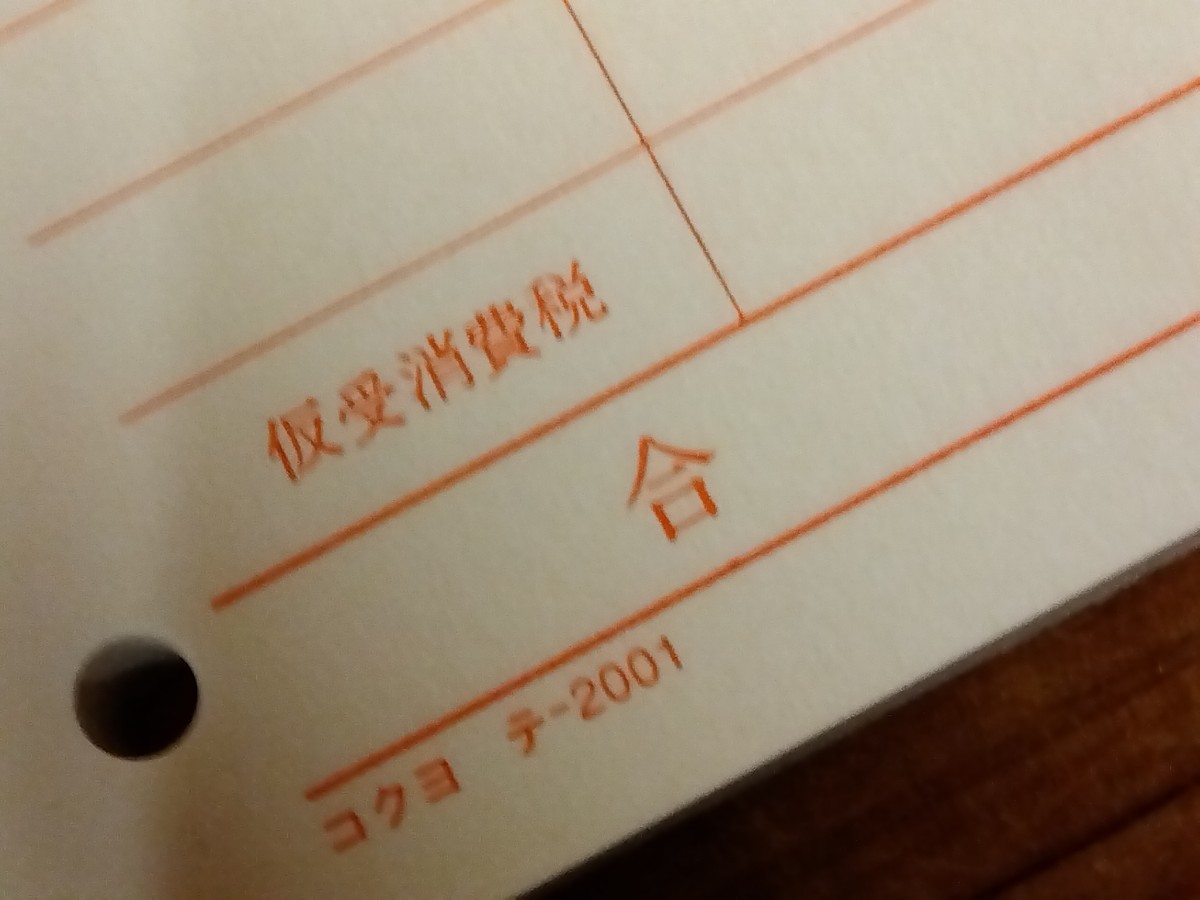 仮受消費税
合
コクヨ テ-2001